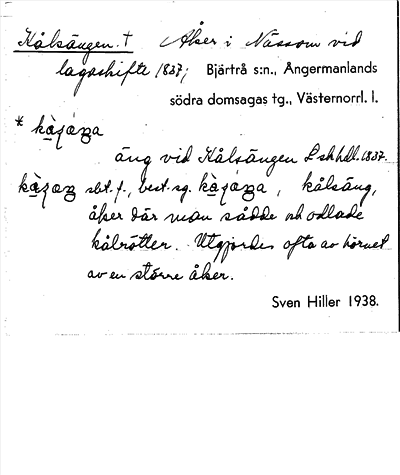 Kålsängen. † Åker i Nässom vid
lagaskifte 1837; Bjärtrå s:n., Ångermanlands
södra domsagas tg., Västernorrl. l.
*
äng vid Kålsängen L sk hdl. 1837.
sbt. f., best. sg. , kålsäng,
åker där man sådde och odlade
kålrötter. Utgjordes ofta av hörnet
av en större åker.
Sven Hiller 1938.